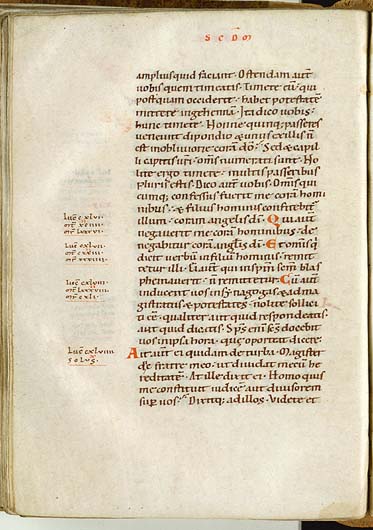 S C D M
amplius quid faciant. Ostendam aut
uobis quem timeatis. Timete eu qui
postquam occiderit. habet potestate
mittere in gehenna. Ita dico uobis.
hunc timete. Nonne quinq; passeres
ueneunt dipondio & unus ex illis n
est in obliuione cora do. Sed & capilli
capitis uri. oms numerati sunt. No
lite ergo timere. multis passeribus
pluris estis. Dico aut uobis. Omis qui
cumq; confessus fuerit me cora homi
nibus. & filius hominis confitebitur
illum. coram angelis di. Qui aut
negauerit me cora hominibus. de
negabitur cora anglis di. Et omis q
dicit uerbu in filiu hominis. remit
tetur illi. Ei aut qui in spm scm blas
phemauerit. n remittetur. Cu aut
inducent uos in synagogas & ad ma
gistratus & potestates. nolite sollici
ti ee. qualiter aut quid respondeatis.
aut quid dicatis. Sps eni scs docebit
uos in ipsa hora. que oporteat dicere.
Ait aut ei quidam de turba. Magister
dic fratri meo. ut diuidat mecu he
reditate. At ille dixit ei. Homo quis
me constituit iudice. aut diuisorem
sup uos. Dixitq; ad illos. Videte et
Luc cxlvi
Luc cxlvii
Luc cxlviii
mt cxli
Luc cxlviiii
solus